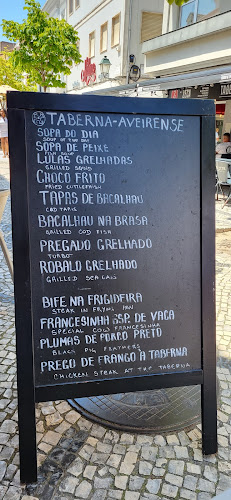 TABERNA-AVEIRENSE
SOPA DO DIA
SOUP OF THE DAY
SOPA DE PEIXE
FISH SOUP
LULAS GRELHADAS
GRILLED SQUID
CHOCO FRITO
FRIED CUTTLEFISH
TAPAS DE BACALHAU
COD TAPAS
BACALHAU NA BRASA
GRILLED COD FISH
PREGADO GRELHADO
TURBOT
ROBALO GRELHADO
GRILLED SEA BASS
BIFE NA FRIGIDEIRA
STEAK IN FRYING PAN
FRANCESINHA ESP. DE VACA
SPECIAL COW FRANCESINHA
PLUMAS DE PORCO PRETO
BLACK PIG FEATHERS
PREGO DE FRANGO À TABERNA
CHICKEN STEAK AT THE TABERNA